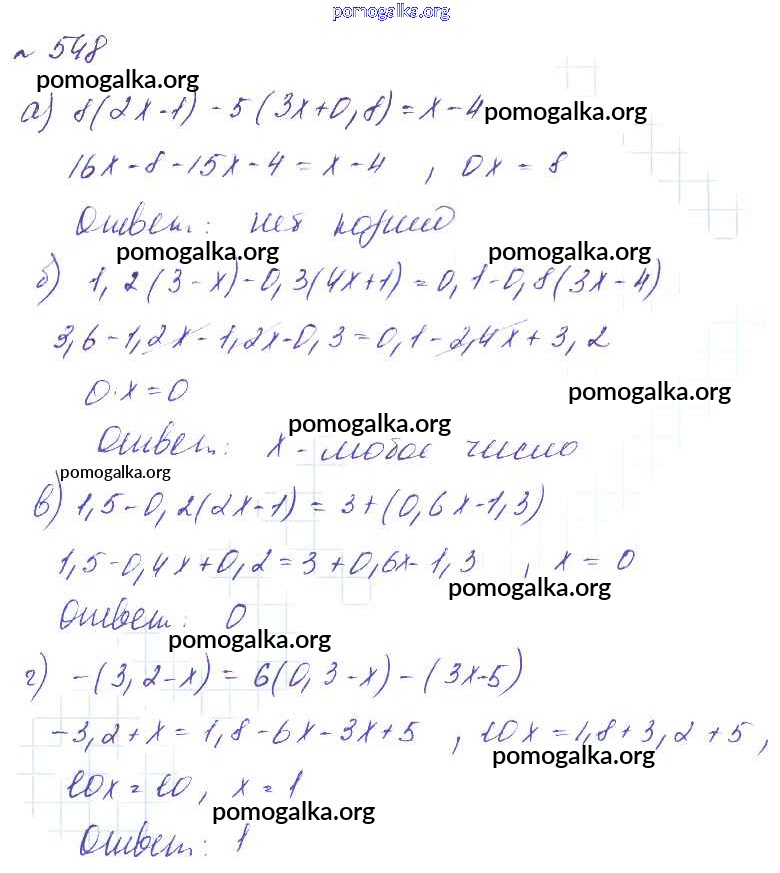 pomogalka.org
№ 548
pomogalka.org
а) 8(2x-1) - 5(3x+0,8) = x-4 pomogalka.org
16x-8-15x-4 = x-4 , 0x = 8
Ответ: нет корней
pomogalka.org pomogalka.org
б) 1,2(3-x)-0,3(4x+1) = 0,1-0,8(3x-4)
3,6-1,2x-1,2x-0,3=0,1-2,4x+3,2
0·x=0 pomogalka.org
pomogalka.org
Ответ: x - любое число
pomogalka.org
в) 1,5-0,2(2x-1) = 3+(0,6x-1,3)
1,5-0,4x+0,2=3+0,6x-1,3 , x = 0
pomogalka.org
Ответ: 0
pomogalka.org
г) -(3,2-x) = 6(0,3-x)-(3x-5)
-3,2+x=1,8-6x-3x+5 , 10x=1,8+3,2+5,
pomogalka.org
10x=10, x=1
pomogalka.org
Ответ: 1